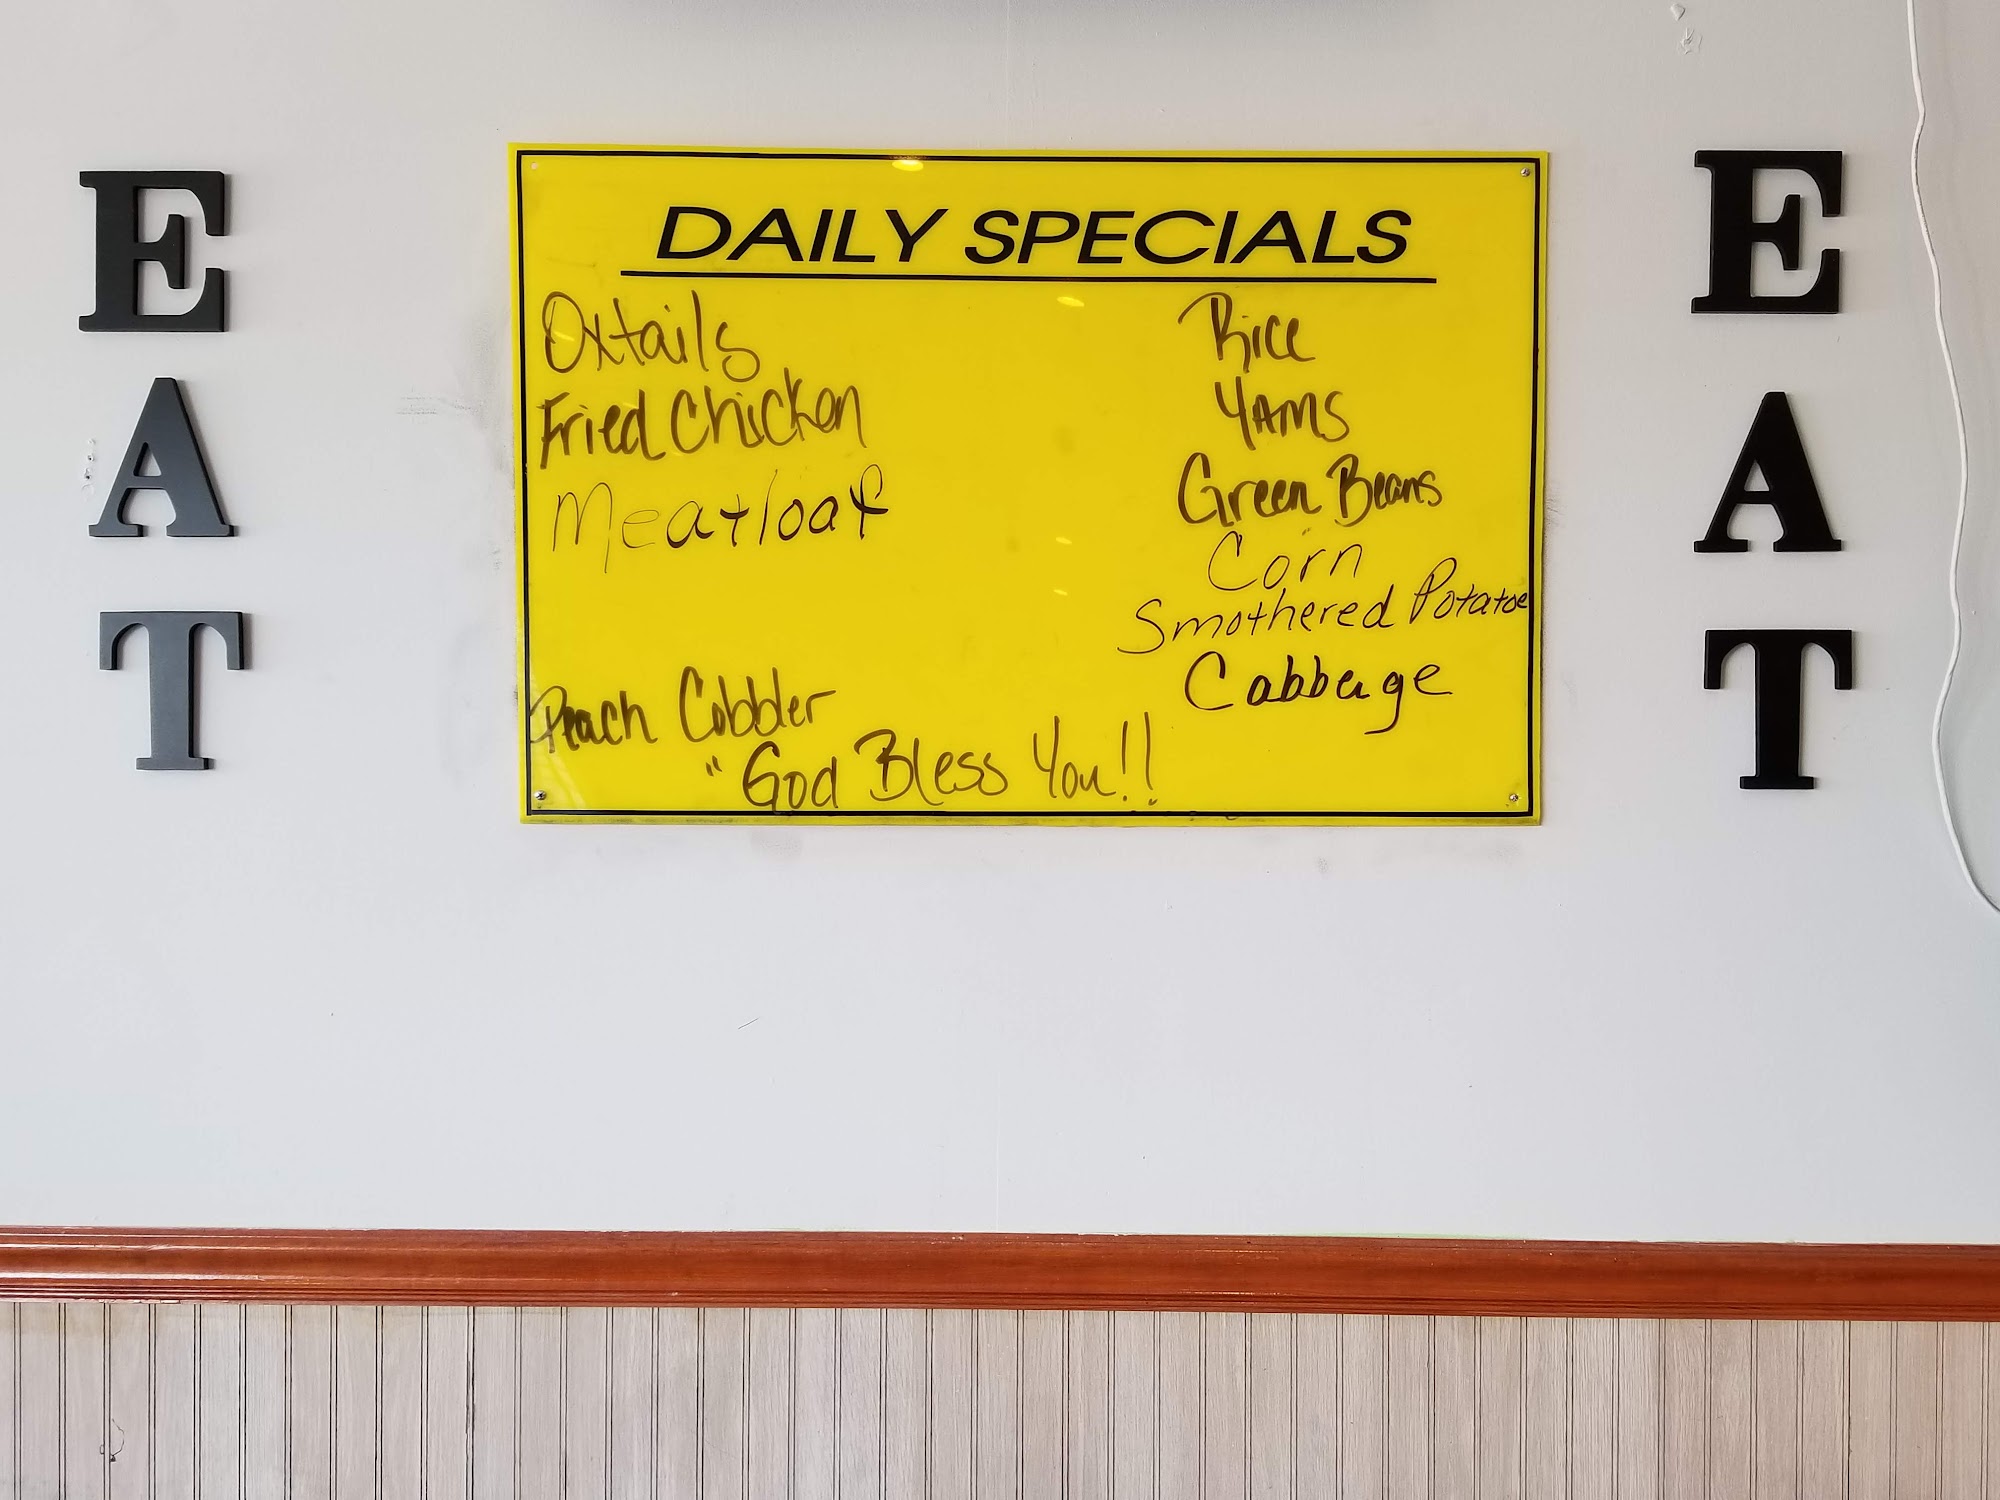 DAILY SPECIALS
Oxtails
Fried Chicken
Meatloaf
Peach Cobbler
Rice
YAMS
Green Beans
Corn
Smothered Potatoe
Cabbage
"God Bless You!!
E
A
T
E
A
T